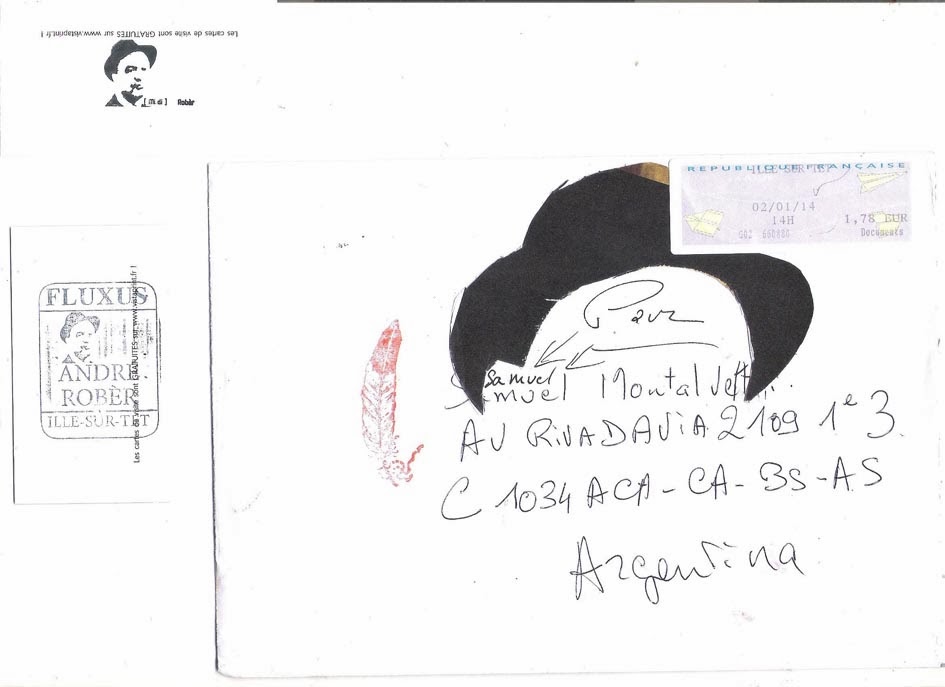 Les cartes de visite sont GRATUITES sur www.vistaprint.fr !
Robèr
FLUXUS
ANDRÉ
ROBÈR
ILLE-SUR-TÊT
Les cartes de visite sont GRATUITES sur www.vistaprint.fr !
REPUBLIQUE FRANÇAISE
ILLE SUR TET
02/01/14
14H
1,78 EUR
Documents
Pour
Samuel
Samuel Montalvetti
AV RIVADAVIA 2109 1e 3
C 1034 ACA-CA-BS-AS
Argentina